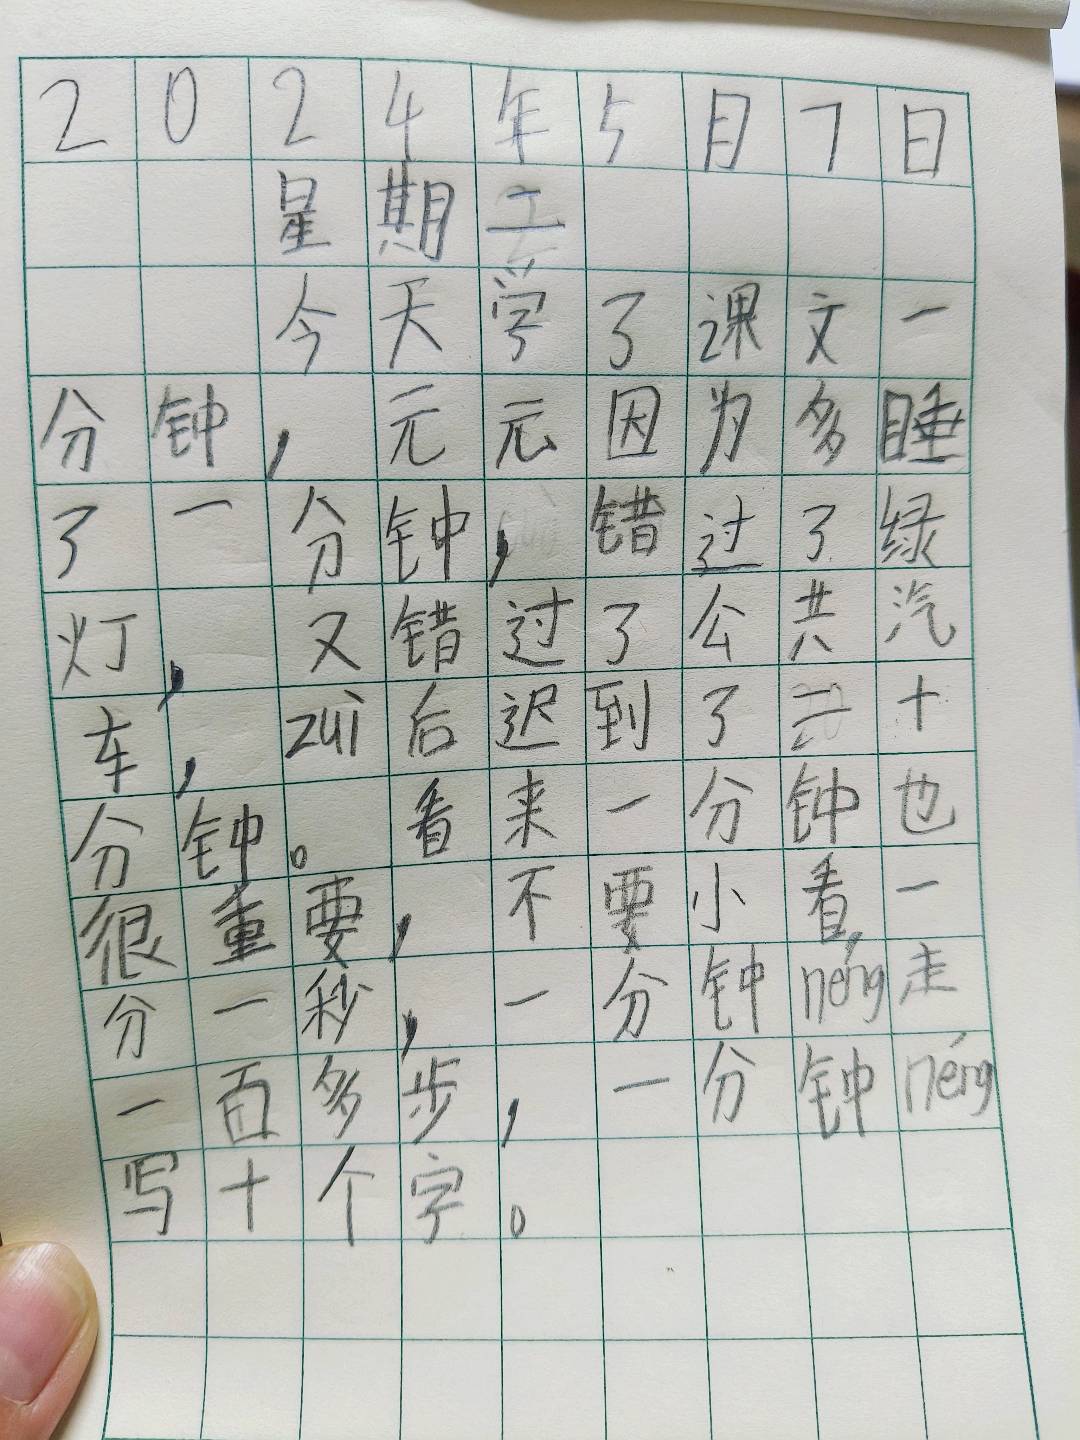 2024年5月7日
星期二
今天学了课文一
分钟，元元因为多睡
了一分钟，错过了绿
灯，又错过了公共汽
车，zuì后迟到了二十
分钟。看来一分钟也
很重要，不要小看，一
分一秒，一分钟néng走
一百多步，一分钟néng
写十个字。